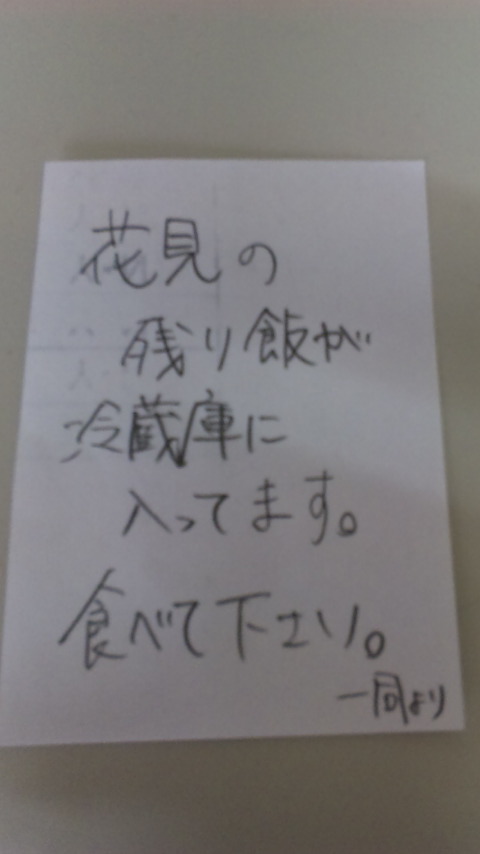 花見の
残り飯が
冷蔵庫に
入ってます。
食べて下さい。
一同より